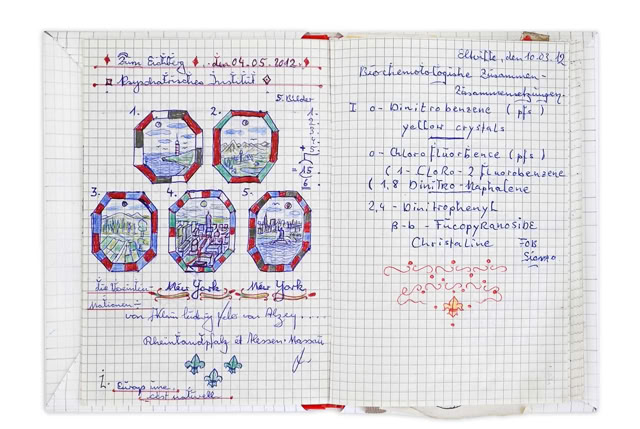 Zum Eichberg den 04.05.2012.
Psychatrisches Institut
5. Bilder
1. 2.
1.
2.
3.
4.
+ 5.
= 15
6.
3. 4. 5.
New York New York
von Klein ludwig
Rheinlandpfalz et Hessen-Nassau
Europ une
c'est naturell
Eltville, den 10.03.12
Biochemotologische Zusammen-
Zusammensetzungen.
I o-Dinitrobenzene (pfs)
yellow crystals
o-Chlorofluorbence (pfs)
(1-CLoRo-2 Fluorobenzene
(1,8 Dinitro-Naphalene
2,4-Dinitrophenyl
β-b-Fucopyranoside
Christaline FOB